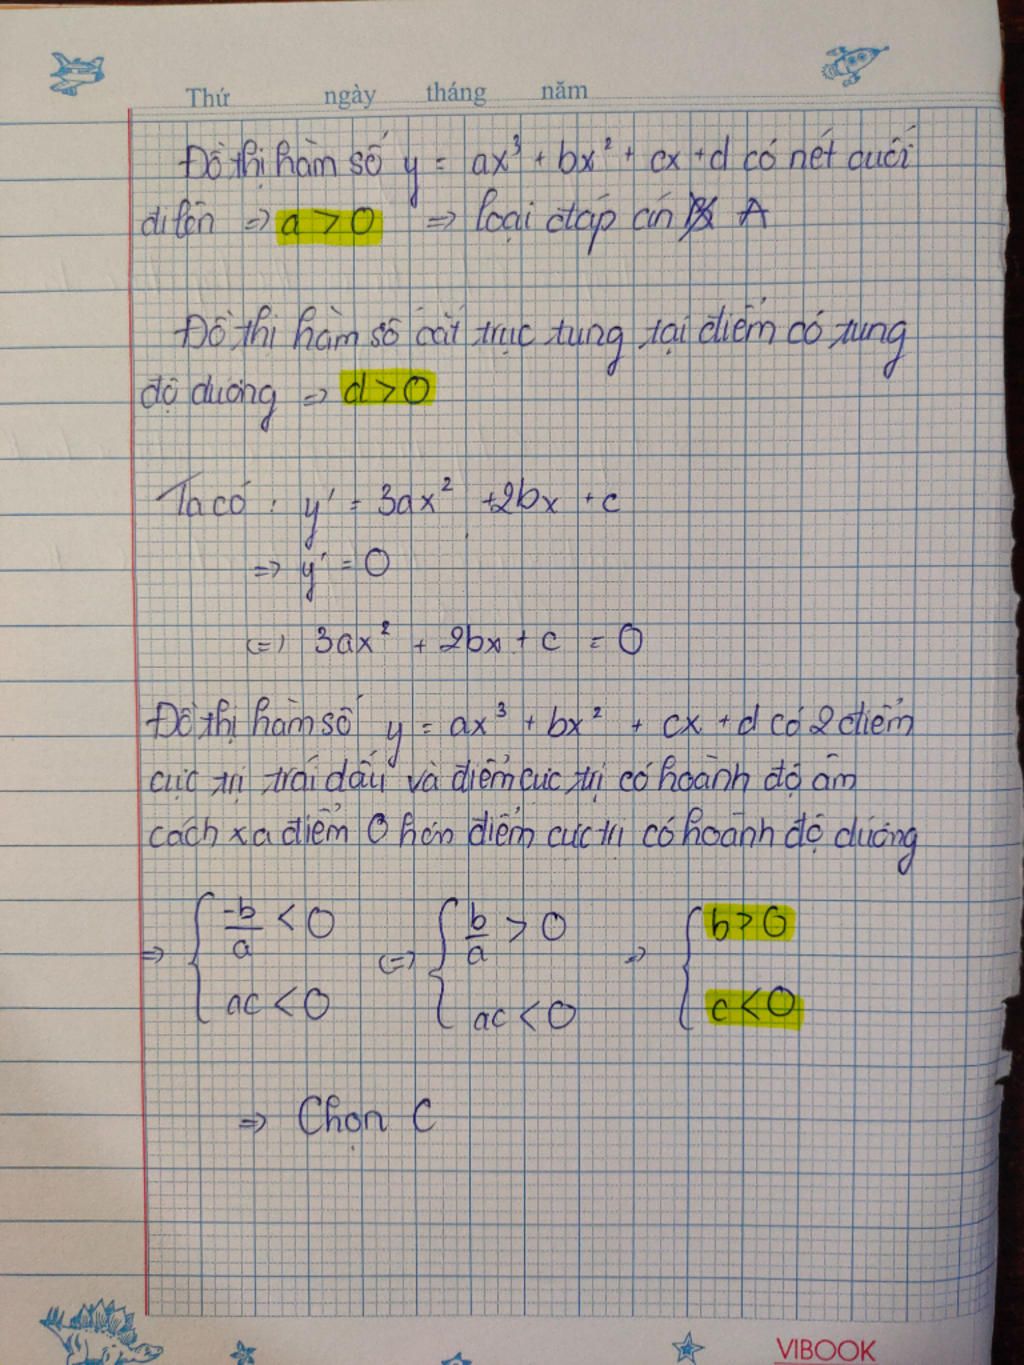 Thứ ngày tháng năm
Đồ thị hàm số y = ax³ + bx² + cx + d có nét cuối
đi lên => a > 0 => loại đáp án A
Đồ thị hàm số cắt trục tung tại điểm có tung
độ dương => d > 0
Ta có : y' = 3ax² + 2bx + c
=> y' = 0
<=> 3ax² + 2bx + c = 0
Đồ thị hàm số y = ax³ + bx² + cx + d có 2 điểm
cực trị trái dấu và điểm cực trị có hoành độ âm
cách xa điểm O hơn điểm cực trị có hoành độ dương
=> { -b/a < 0 <=> { b/a > 0 => { b > 0
ac < 0 ac < 0 c < 0
=> Chọn C
VIBOOK